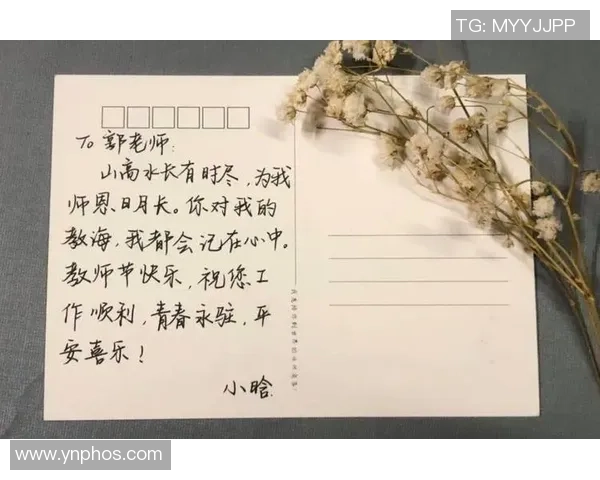 TG: MYYJJPP
To 郭老师:
山高水长有时尽,为我
师恩日月长。你对我的
教海,我都会记在心中。
教师节快乐,祝您工
作顺利,青春永驻,平
安喜乐!
小晗
www.ynphos.com